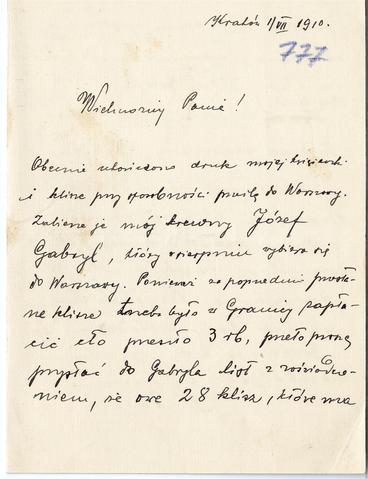 Kraków 1/VII 1910.
777
Wielmożny Panie!
Obecnie ukończono druk mojej książeczki
i klisze przy sposobności prześlę do Warszawy.
Zabierze je mój krewny Józef
Gabryl, który w sierpniu wybiera się
do Warszawy. Ponieważ za poprzednio przesła-
ne klisze trzeba było w Granicy zapła-
cić cło przeszło 3 rb, przeto proszę
przysłać do Gabryla list z zaświadcze-
niem, że owe 28 klisz, które ma